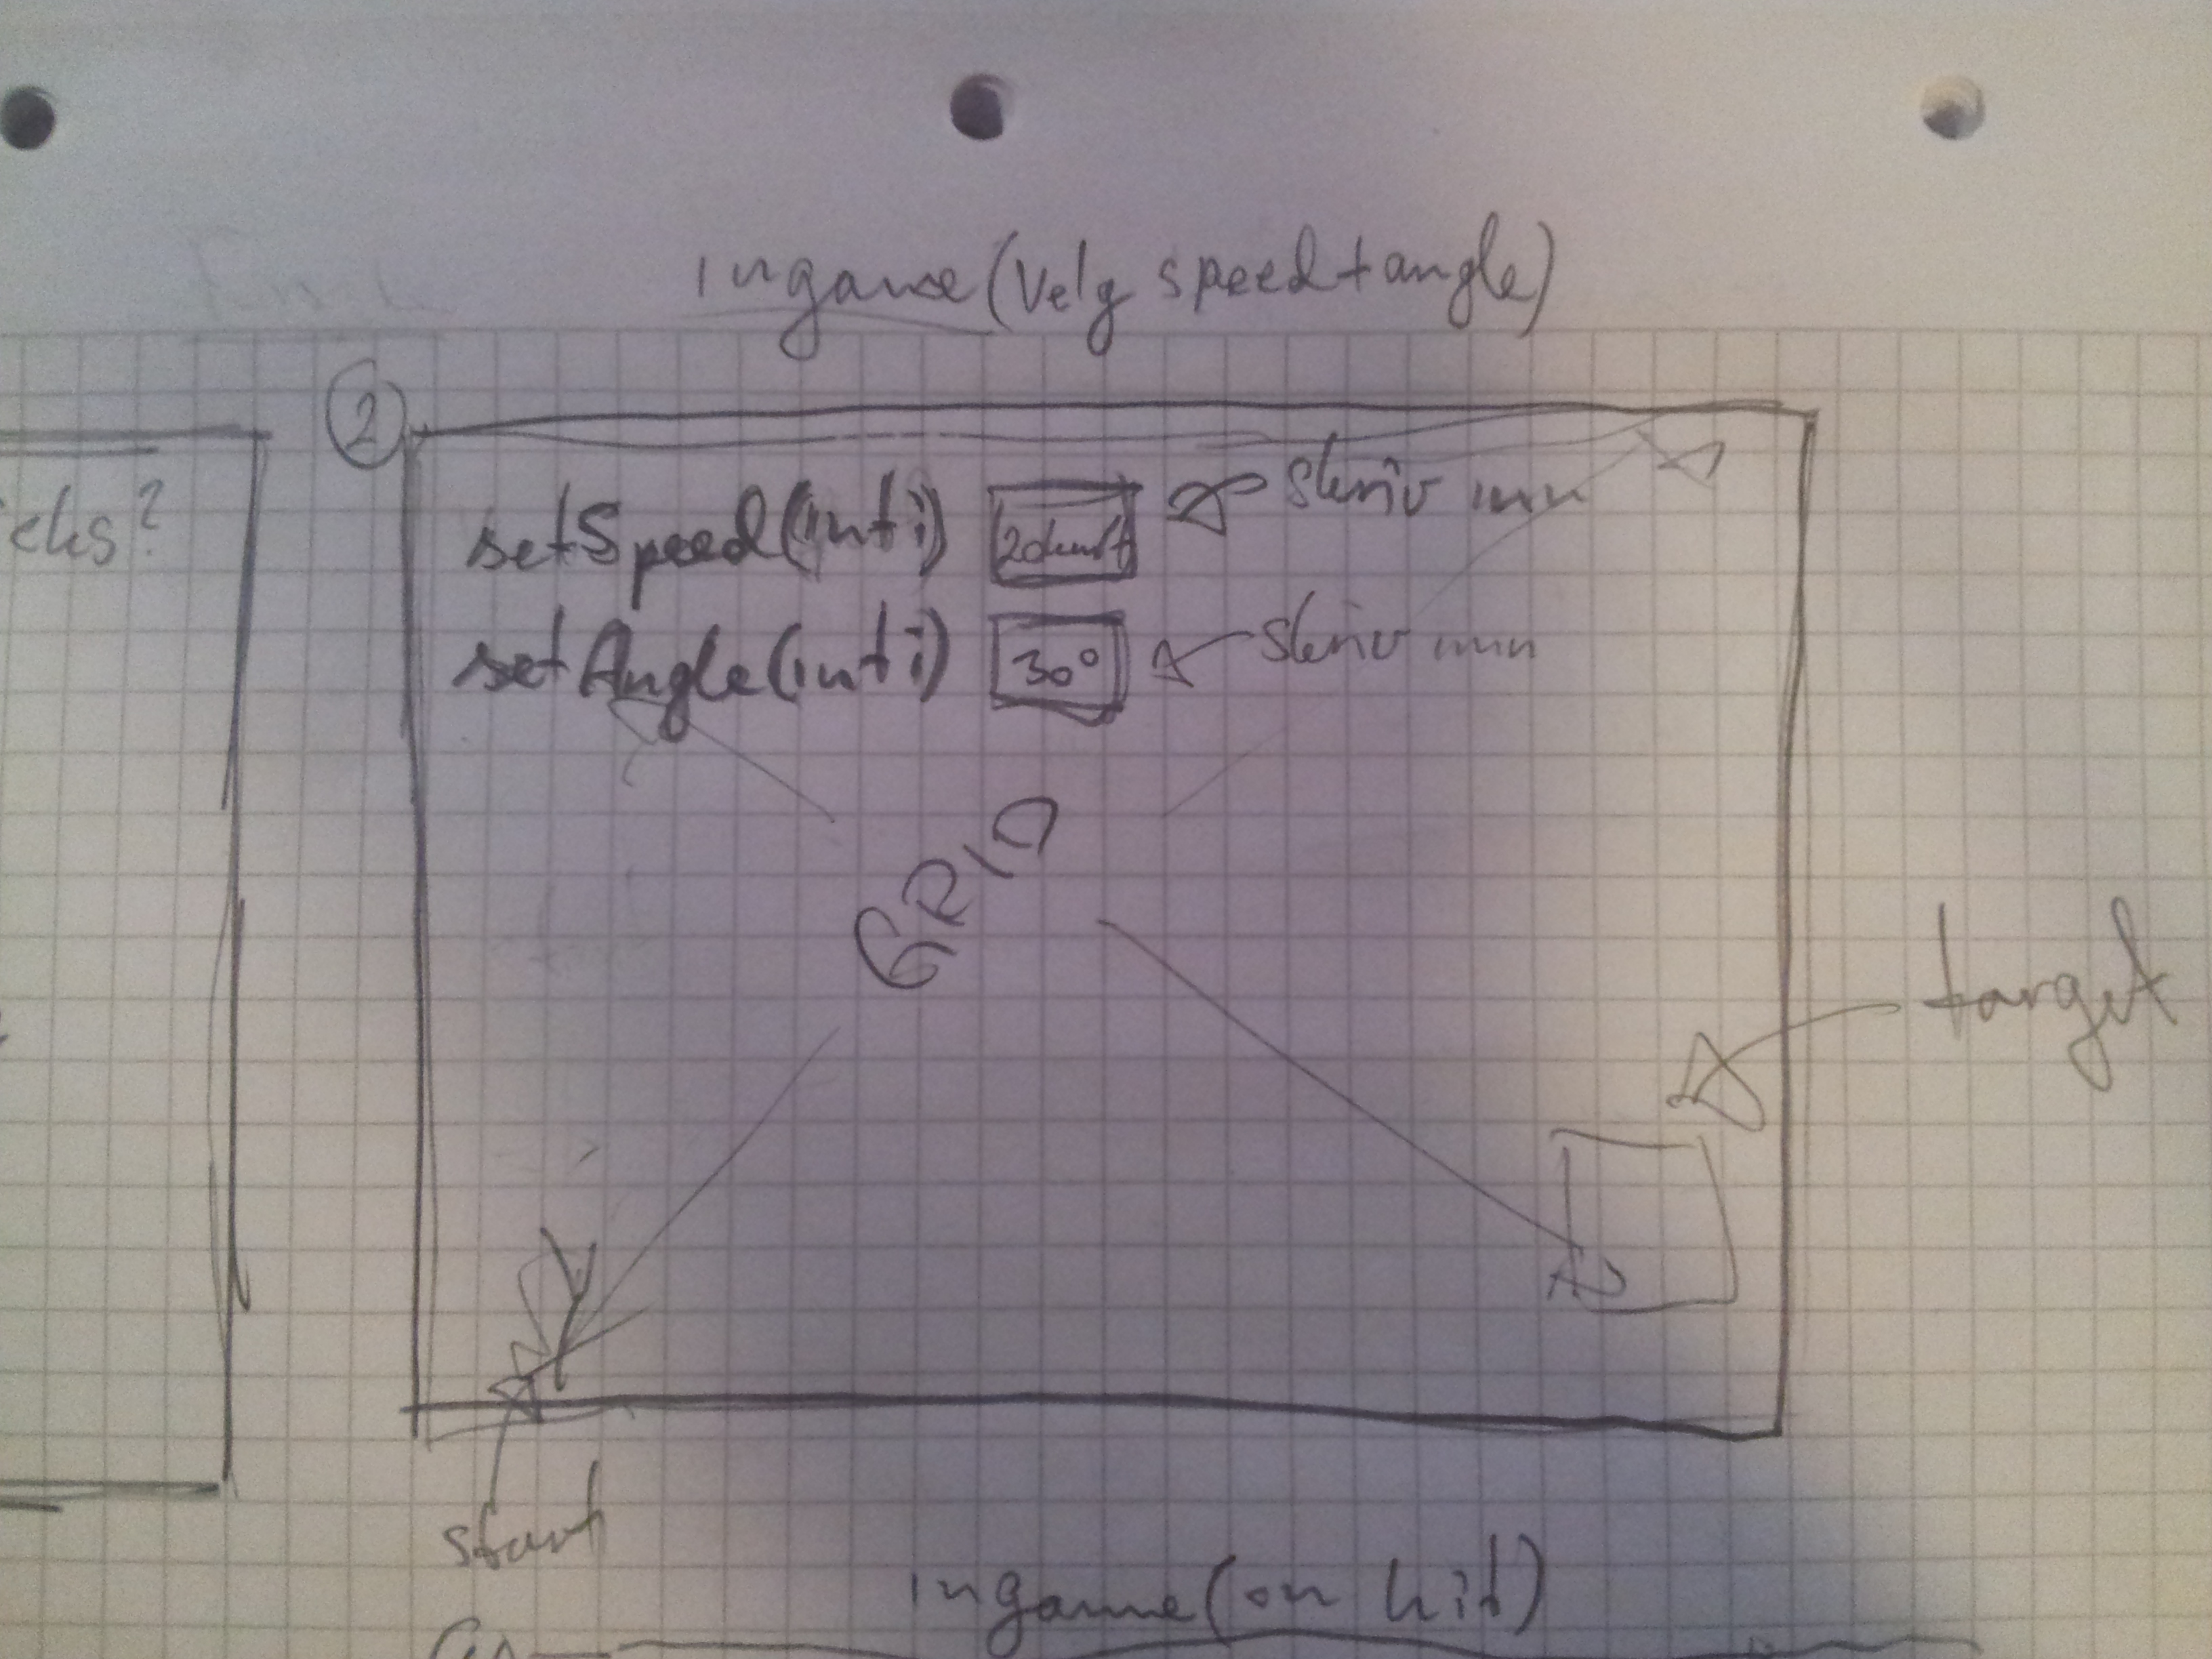 ingame (Velg speed + angle)
2
setSpeed(int i) 20km/t skriv inn
setAngle(int i) 30° skriv inn
GRID
target
start
ingame (on hit)